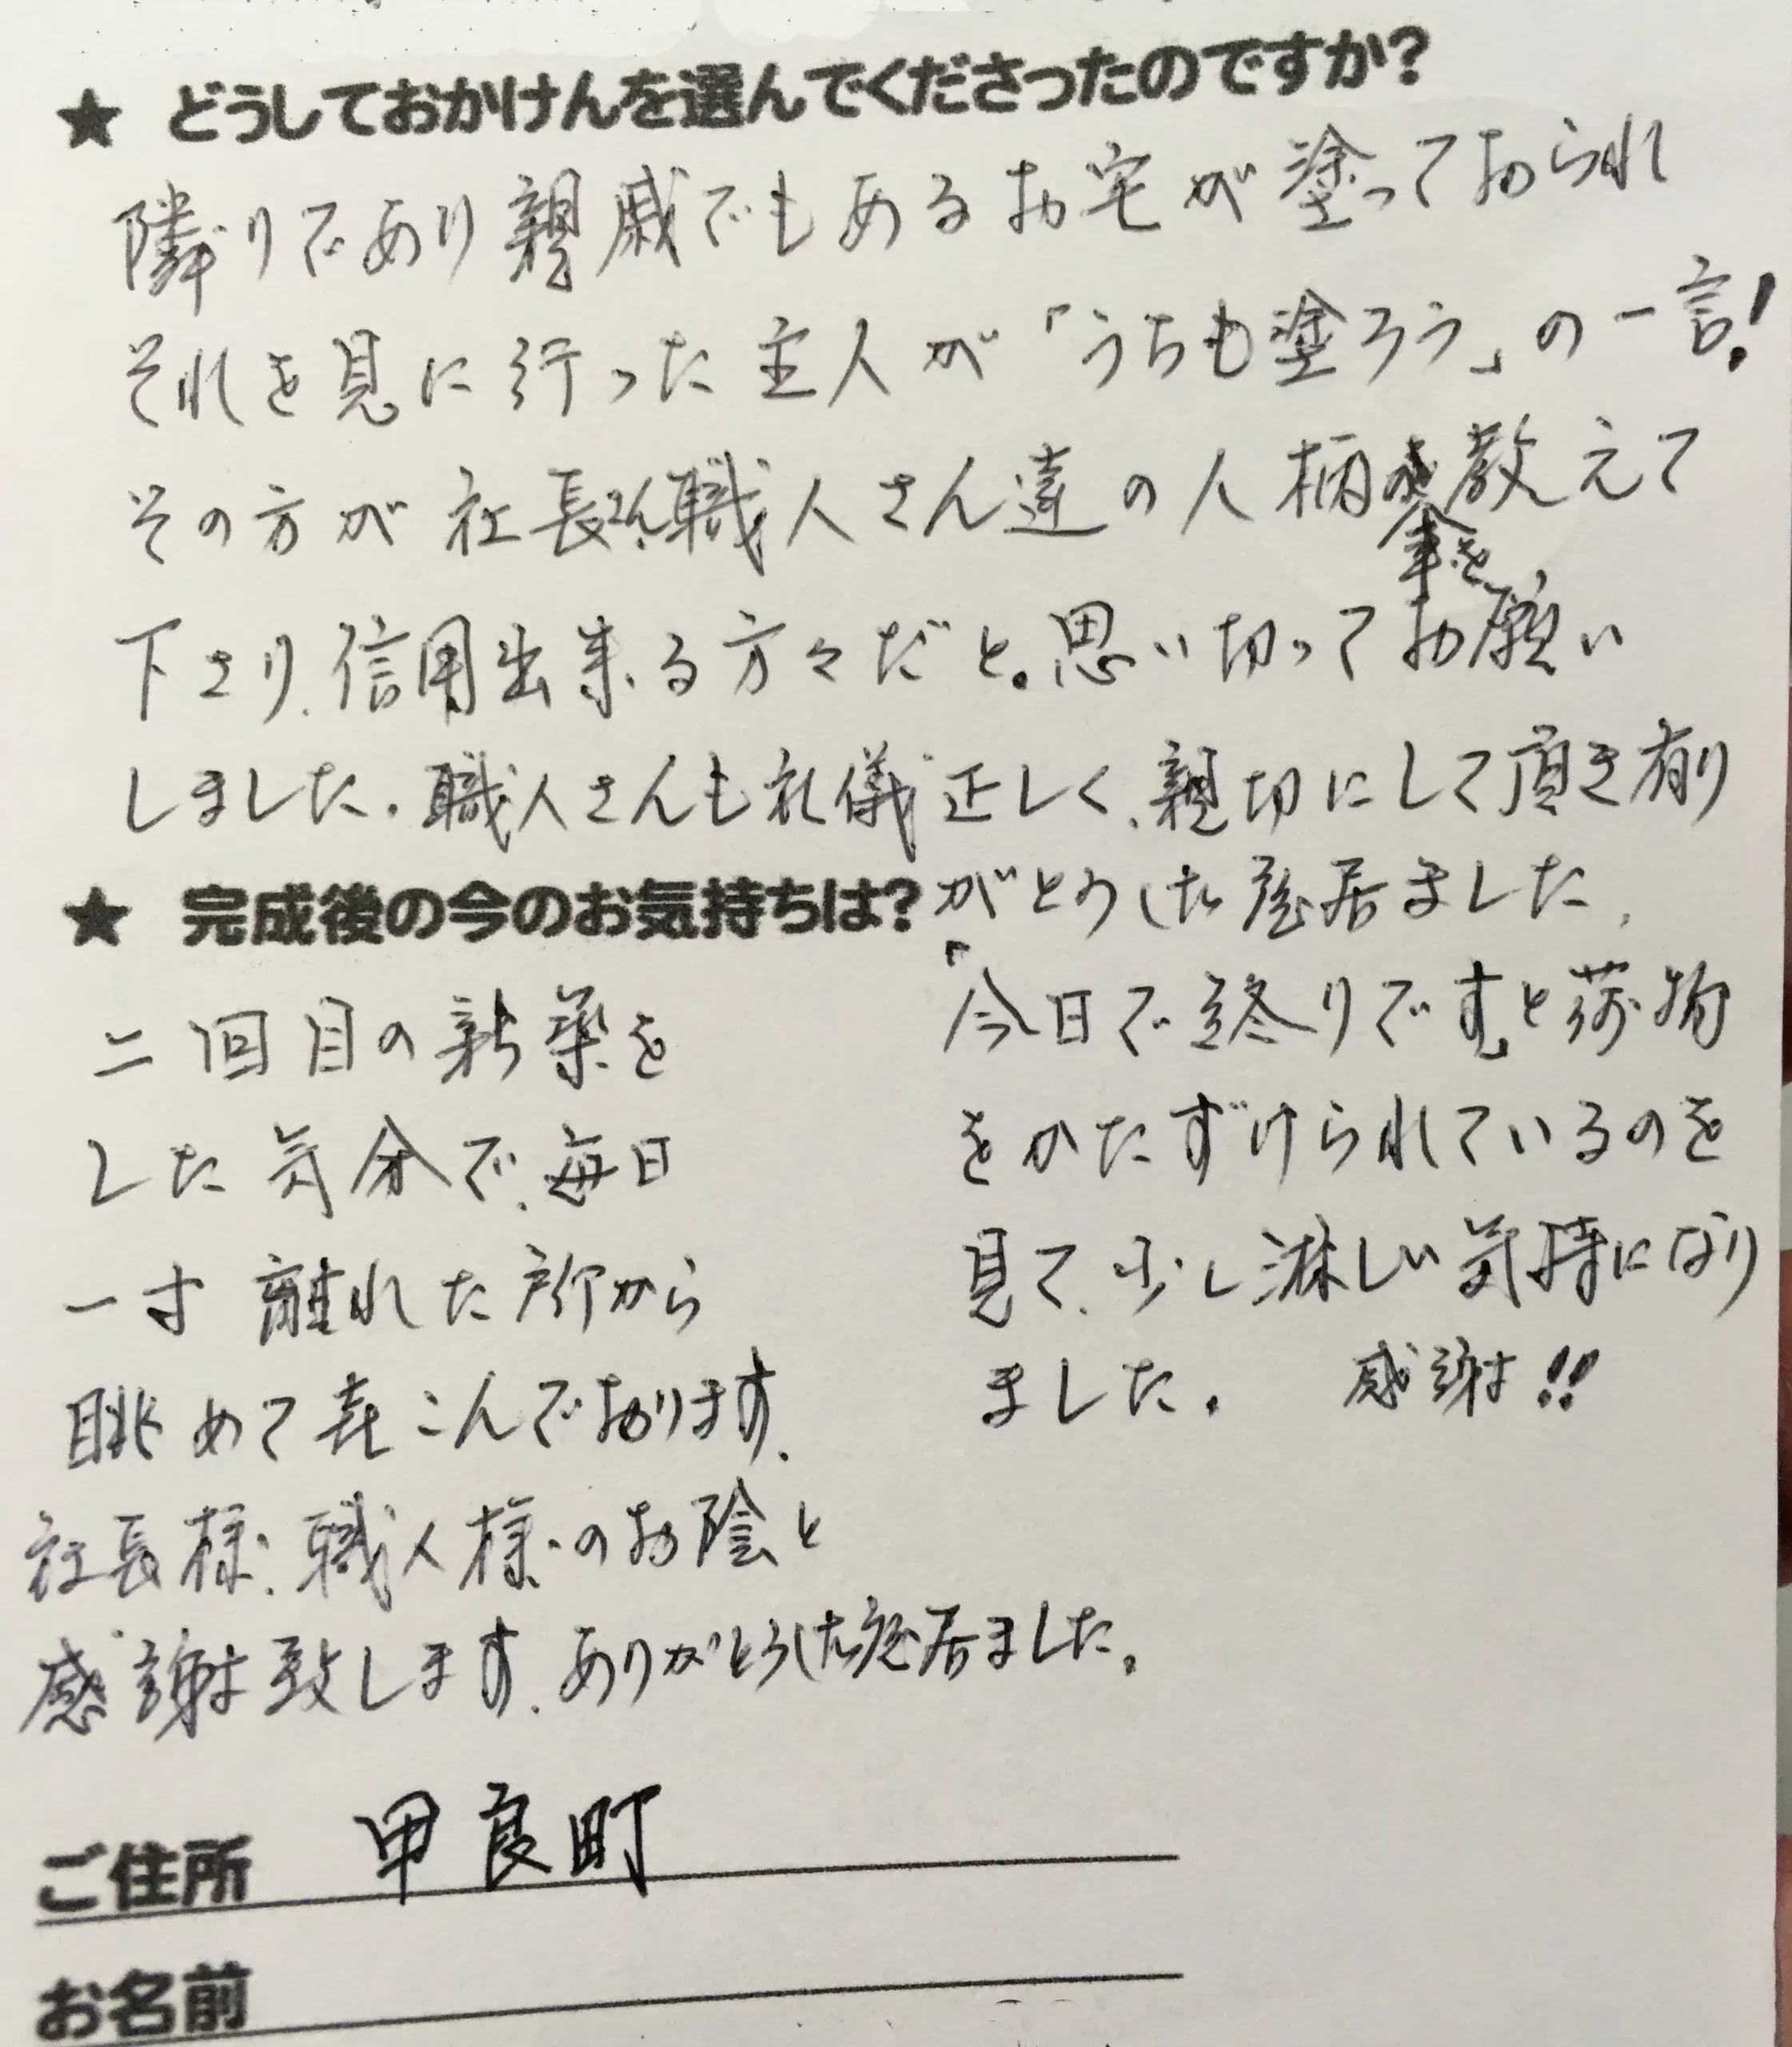 ★ どうしておかけんを選んでくださったのですか?
隣りであり親戚でもあるお宅が塗っておられ
それを見に行った主人が「うちも塗ろう」の一言!
その方が社長さん、職人さん達の人柄を教えて
事を、
下さり、信用出来る方々だと。思い切ってお願い
しました。職人さんも礼儀正しく、親切にして頂き有り
がとうした座居ました。
「今日で終りです」と荷物
をかたずけられているのを
見て、少し淋しい気持になり
ました。 感謝!!
★ 完成後の今のお気持ちは?
二回目の新築を
した気分で、毎日
一寸離れた所から
眺めて喜こんでおります。
社長様、職人様のお陰と
感謝致します。ありがとうした座居ました。
ご住所 甲良町
お名前